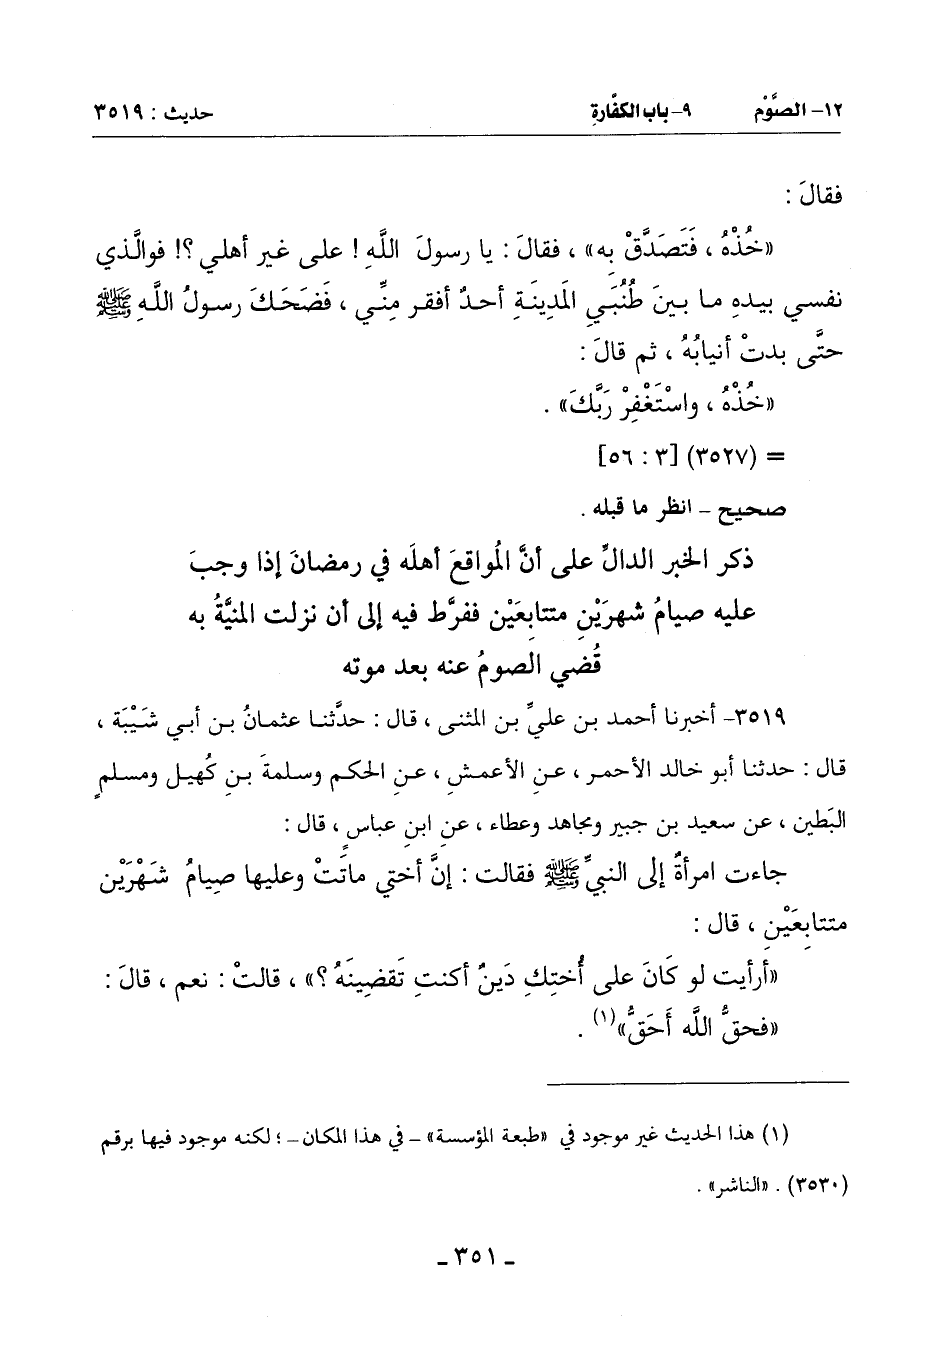 ١٢- الصَّوْم ٩- باب الكفَّارة حديث : ٣٥١٩
فقالَ :
«خُذْهُ ، فَتَصَدَّقْ بِه» ، فقالَ : يا رسولَ اللَّهِ ! على غيرِ أهلي ؟! فوالَّذي
نفسي بيدهِ ما بينَ طُنُبَيِ المَدِينَةِ أحدٌ أفقر مِنِّي ، فَضَحَكَ رسولُ اللَّهِ ﷺ
حتَّى بدتْ أنيابُهُ ، ثم قالَ :
«خُذْهُ ، واسْتَغْفِرْ رَبَّكَ» .
= (٣٥٢٧) [٣ : ٥٦]
صحيح - انظر ما قبله .
ذكر الخبرِ الدالِّ على أنَّ المُواقعَ أهلَه في رمضانَ إذا وجبَ
عليه صيامُ شهرَيْنِ متتابِعَيْنِ ففرَّط فيه إلى أن نزلت المنيَّةُ به
قُضي الصومُ عنه بعد موته
٣٥١٩- أخبرنا أحمد بن عليِّ بن المثنى ، قال : حدَّثنا عثمانُ بن أبي شَيْبَة ،
قال : حدثنا أبو خالد الأحمر ، عنِ الأعمشِ ، عنِ الحكمِ وسلمةَ بنِ كُهيل ومسلمٍ
البَطين ، عن سعيد بن جبير ومجاهد وعطاء ، عنِ ابنِ عباسٍ ، قال :
جاءت امرأةٌ إلى النبيِّ ﷺ فقالت : إنَّ أختي ماتَتْ وعليها صِيامُ شَهْرَيْنِ
متتابِعَيْنِ ، قال :
«أرأيت لو كَانَ على أُختِكِ دَينٌ أكنتِ تَقضِينَهُ ؟» ، قالتْ : نعم ، قالَ :
«فحقُّ اللَّه أَحَقُّ»(١) .
(١) هذا الحديث غير موجود في «طبعة المؤسسة» - في هذا المكان - ؛ لكنه موجود فيها برقم
(٣٥٣٠) . «الناشر» .
- ٣٥١ -